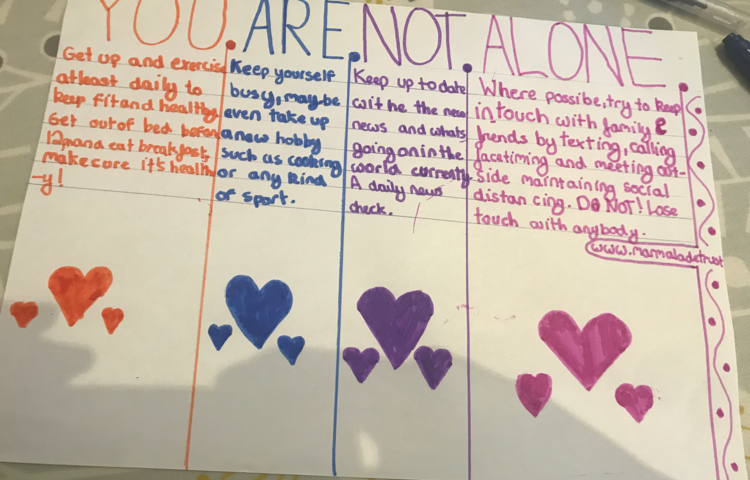 YOU. ARE. NOT. ALONE.
Get up and exercise
atleast daily to
keep fit and healthy.
Get out of bed before
12pm and eat breakfast,
make cure it's health
-y!
Keep yourself
busy, maybe
even take up
a new hobby
such as cooking
or any kind
of sport.
Keep up to date
wit he the new
news and whats
going on in the
world currently.
A daily news
check.
Where possibe, try to keep
in touch with family &
friends by texting, calling
facetiming and meeting out-
side maintaining social
distan cing. Do NOT! Lose
touch with anybody.
www.marmaladetrust